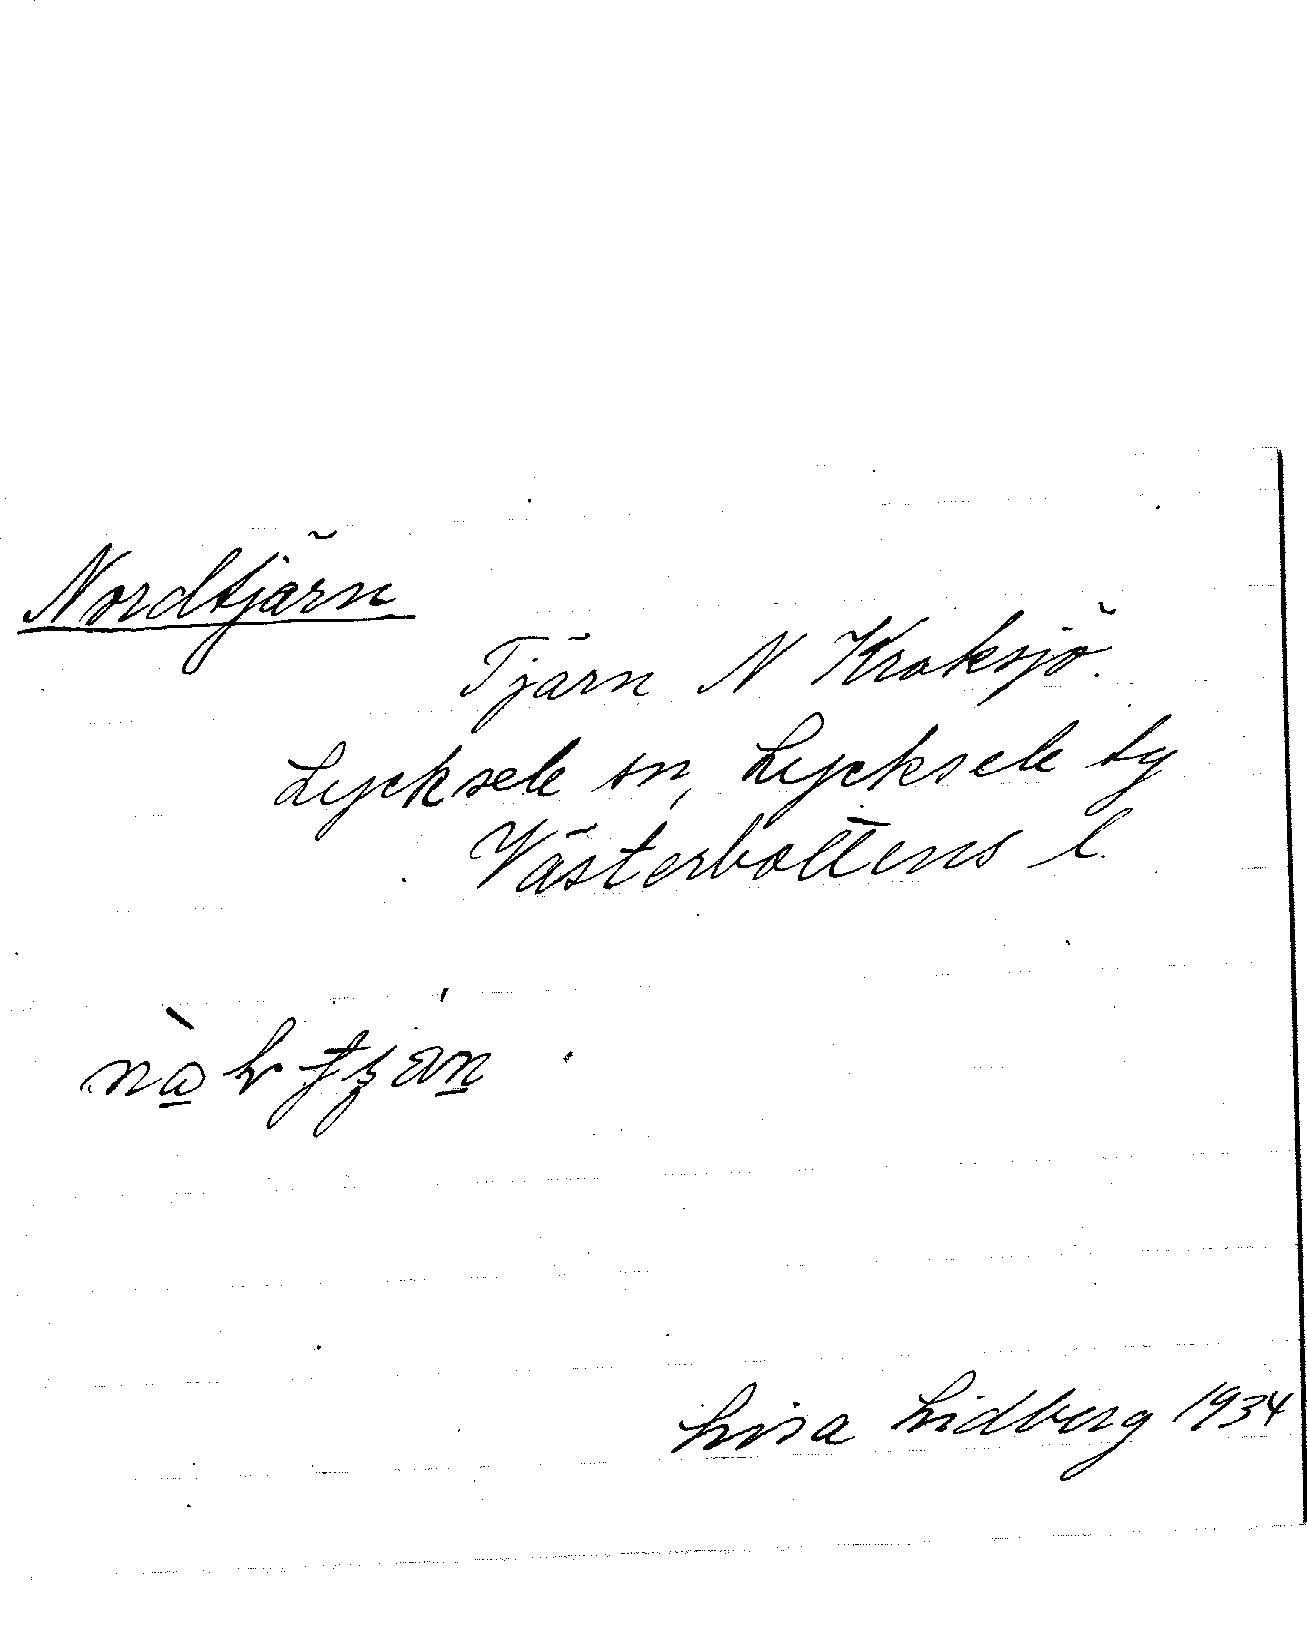 Nordtjärn
Tjärn N Kroksjö.
Lycksele sn, Lycksele tg
Västerbottens l.
Lisa Lidberg 1934